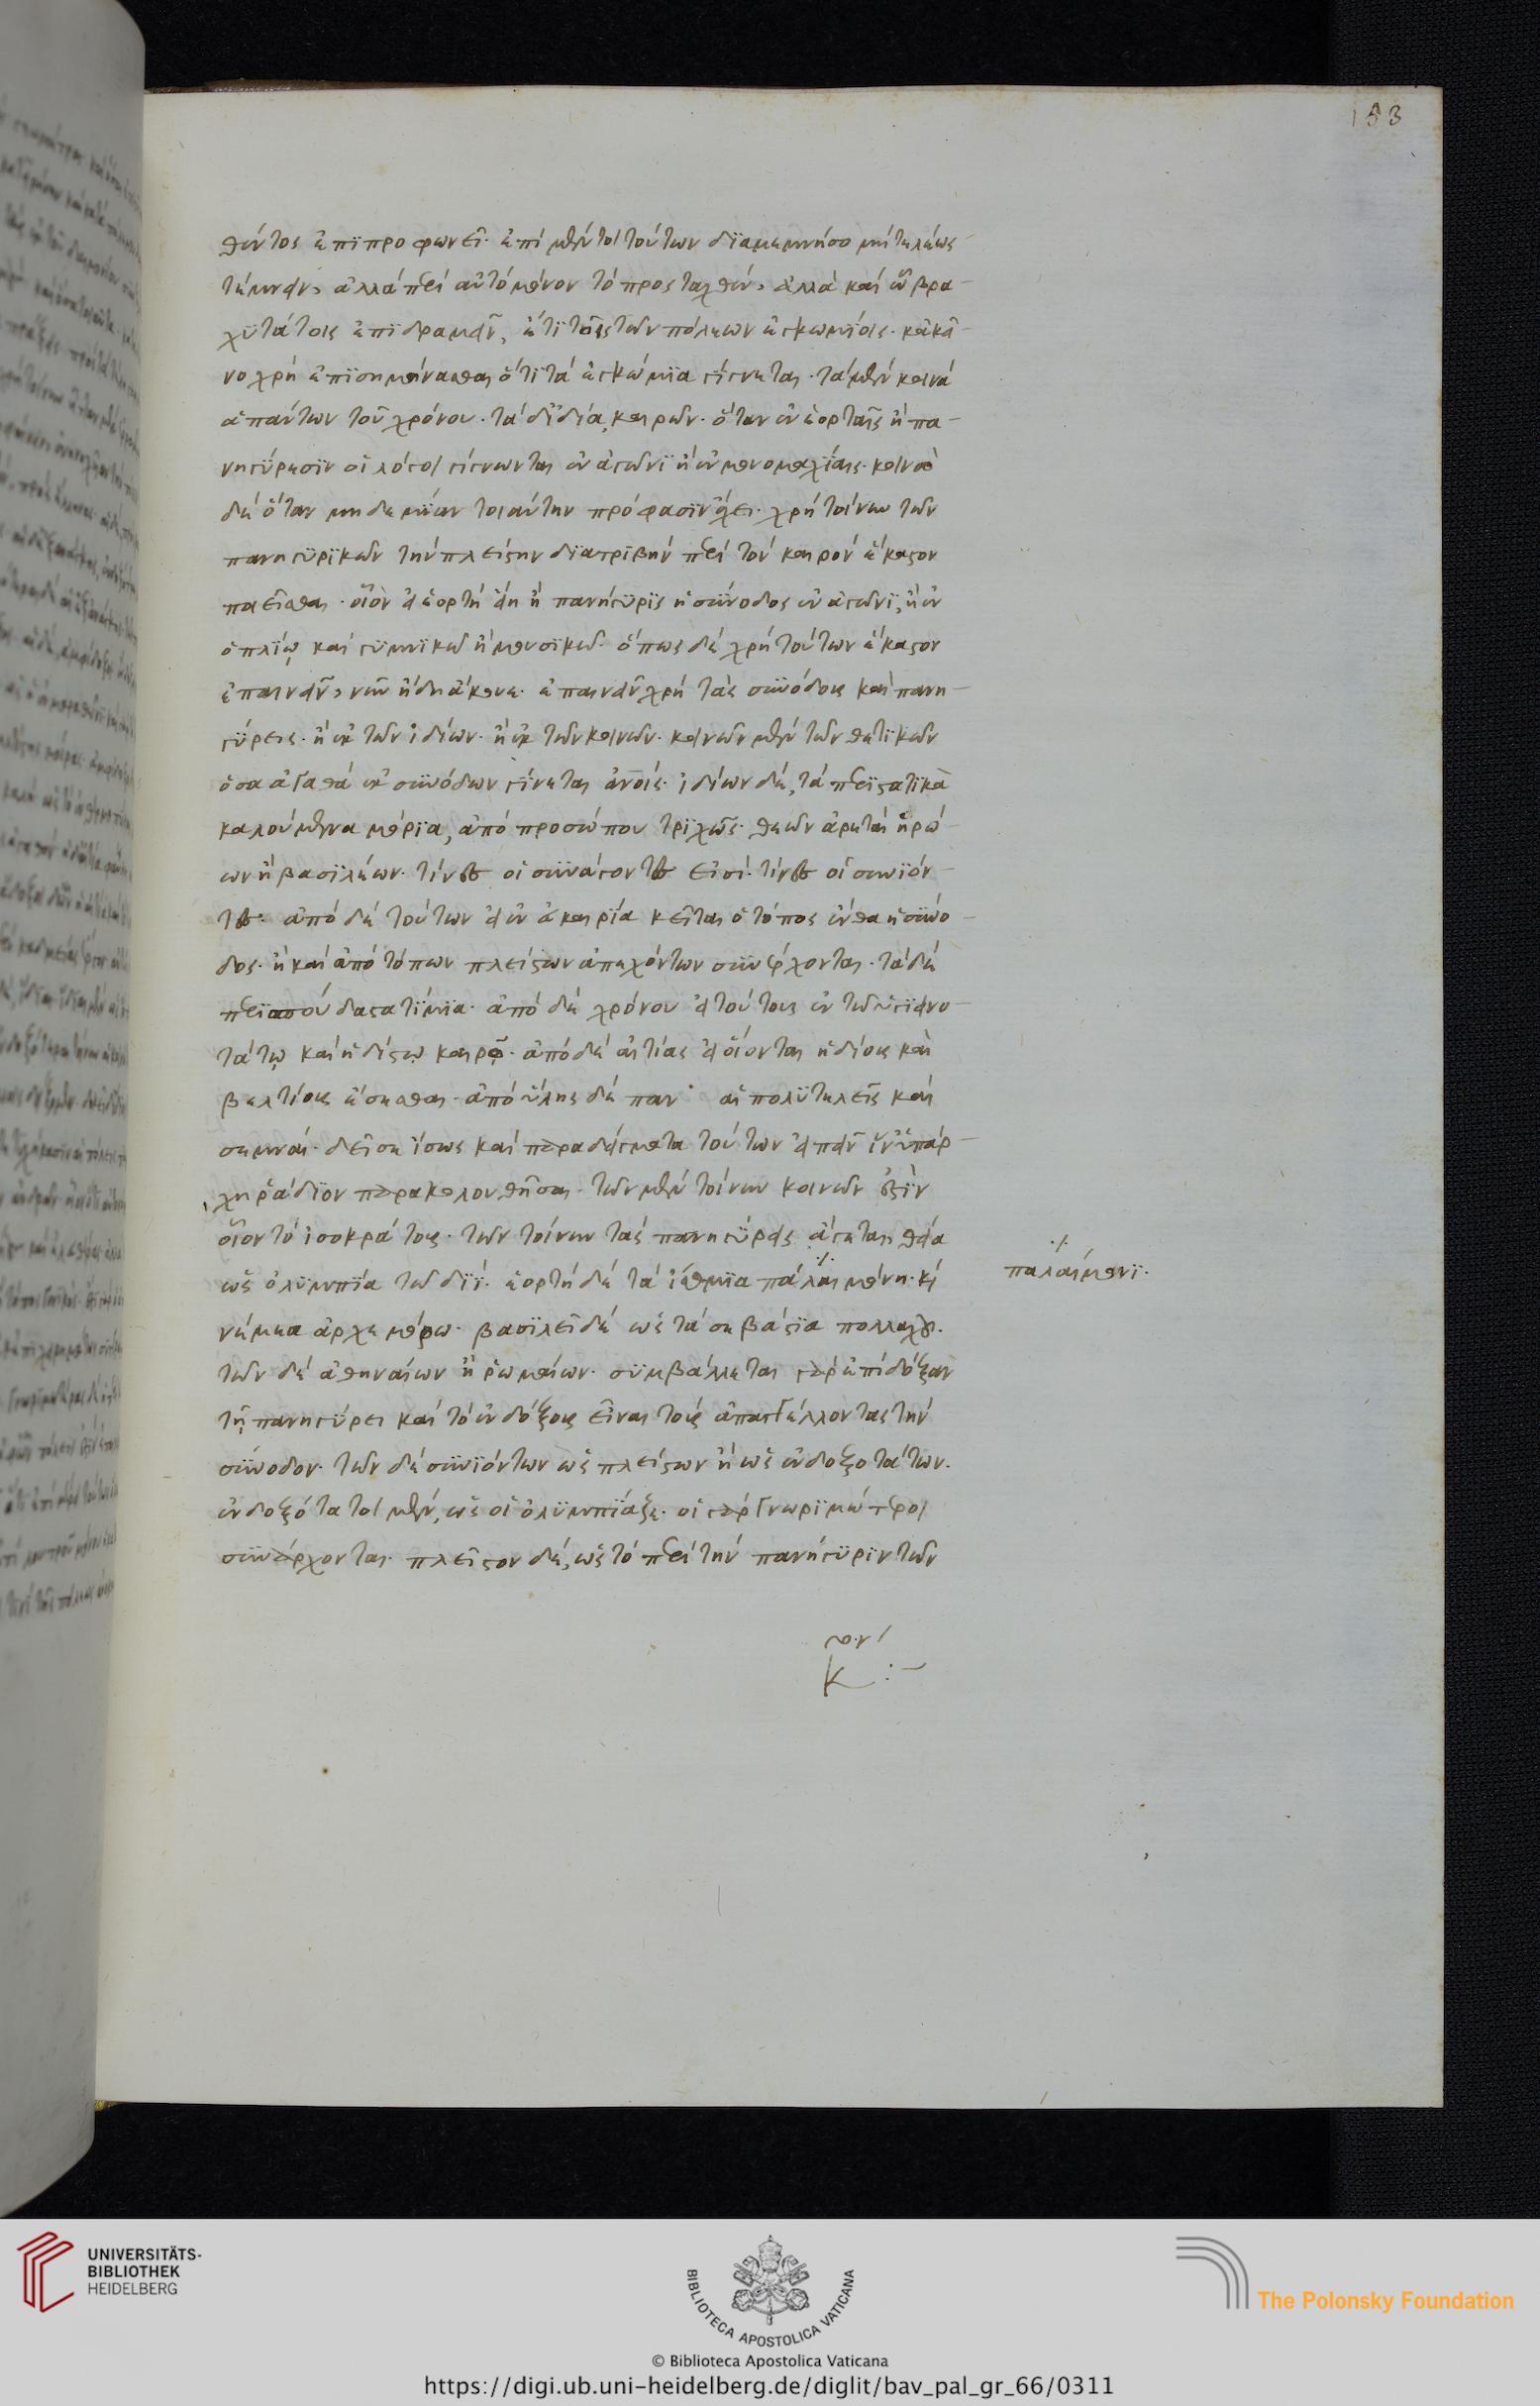 153
θέντος ἐπιπροφωνεῖ· ἐπὶ μέντοι τούτων διαμέμνησο μὴ τελέως
τέμνειν, ἀλλὰ περὶ αὐτὸ μόνον τὸ προσταχθέν, ἀλλὰ καὶ ἐν βρα-
χυτάτοις ἐπιδραμεῖν, ἔτι τοῖς τῶν πόλεων ἐγκωμίοις· κἀκεῖ-
νο χρὴ ἐπισημήνασθαι ὅτι τὰ ἐγκώμια γίγνεται· τὰ μὲν κοινὰ
ἁπάντων τοῦ χρόνου· τὰ δ' ἴδια, καιρῶν· ὅταν ἐν ἑορταῖς ἢ πα-
νηγύρεσιν οἱ λόγοι γίγνωνται ἐν ἀγῶνι ἢ ἐν μονομαχίαις· κοινὰ
δὲ ὅταν μηδεμίαν τοιαύτην πρόφασιν ἔχει· χρὴ τοίνυν τῶν
πανηγυρικῶν τὴν πλείστην διατριβὴν περὶ τὸν καιρὸν ἕκαστον
ποιεῖσθαι· οἷον εἰ ἑορτὴ εἴη ἢ πανήγυρις ἢ σύνοδος ἐν ἀγῶνι, ἢ ἐν
ὁπλίῳ καὶ γυμνικῶ ἢ μουσικῶ· ὅπως δὲ χρὴ τούτων ἕκαστον
ἐπαινεῖν, νῦν ἤδη ἄκουε· ἐπαινεῖν χρὴ τὰς συνόδους καὶ πανη-
γύρεις· ἢ ἐκ τῶν ἰδίων· ἢ ἐκ τῶν κοινῶν· κοινῶν μὲν τῶν θετικῶν
ὅσα ἀγαθὰ ἐκ συνόδων γίνεται ἀνοις· ἰδίων δὲ, τὰ περιστατικὰ
καλούμενα μόρια, ἀπὸ προσώπου τριχῶς· θεῶν ἀρεταὶ ἡρώ-
ων ἢ βασιλέων· τίνες οἱ συνάγοντες εἰσί· τίνες οἱ συνιόν-
τες· ἀπὸ δὲ τούτων εἰ ἐν ἀκαιρία κεῖται ὁ τόπος ἔνθα ἡ σύνο-
δος· ἢ καὶ ἀπὸ τόπων πλείστων ἀπεχόντων συνέρχονται· τὰ δὲ
περισπούδαστα τίμια· ἀπὸ δὲ χρόνου εἰ τούτους ἐν τῶ ὑγιεινο-
τάτῳ καὶ ἡδίστῳ καιρῷ· ἀπὸ δὲ αἰτίας εἰ οἴονται ἡδίους καὶ
βελτίους ἔσεσθαι· ἀπὸ ὕλης δὲ παν αἱ πολυτελεῖς καὶ
σεμναί· δεῖ σε ἴσως καὶ παραδείγματα τούτων εἰπεῖν ἵν' ὑπάρ-
χη ῥάδιον παρακολουθῆσαι· τῶν μὲν τοίνυν κοινῶν ἐστιν
οἷον τὸ ἰσοκράτους· τῶν τοίνυν τὰς πανηγύρεις ἄγεται θεία
ὡς ὀλύμπια τῶ διί· ἑορτὴ δὲ τὰ ἴσθμια πάλαι μόνη· κὶ
νέμεα ἀρχεμόρω· βασιλεῖ δὲ ὡς τὰ σεβάστια πολλαχοῦ.
τῶν δὲ ἀθηναίων ἢ ῥωμαίων· συμβάλλεται γὰρ ἐπίδοξαν
τῇ πανηγύρει καὶ τὸ ἐνδόξους εἶναι τοὺς ἀπαγγέλλοντας τὴν
σύνοδον· τῶν δὲ συνιόντων ὡς πλείστων ἢ ὡς ἐνδοξοτάτων.
ἐνδοξότατοι μὲν, ὡς οἱ ὀλυμπίαζε· οἱ γὰρ γνωριμώτεροι
συνέρχονται· πλεῖστον δὲ, ὡς τὸ περὶ τὴν πανήγυριν τῶν
παλαίμονι·
UNIVERSITÄTS-
BIBLIOTHEK
HEIDELBERG
BIBLIOTECA APOSTOLICA VATICANA
© Biblioteca Apostolica Vaticana
The Polonsky Foundation
https://digi.ub.uni-heidelberg.de/diglit/bav_pal_gr_66/0311